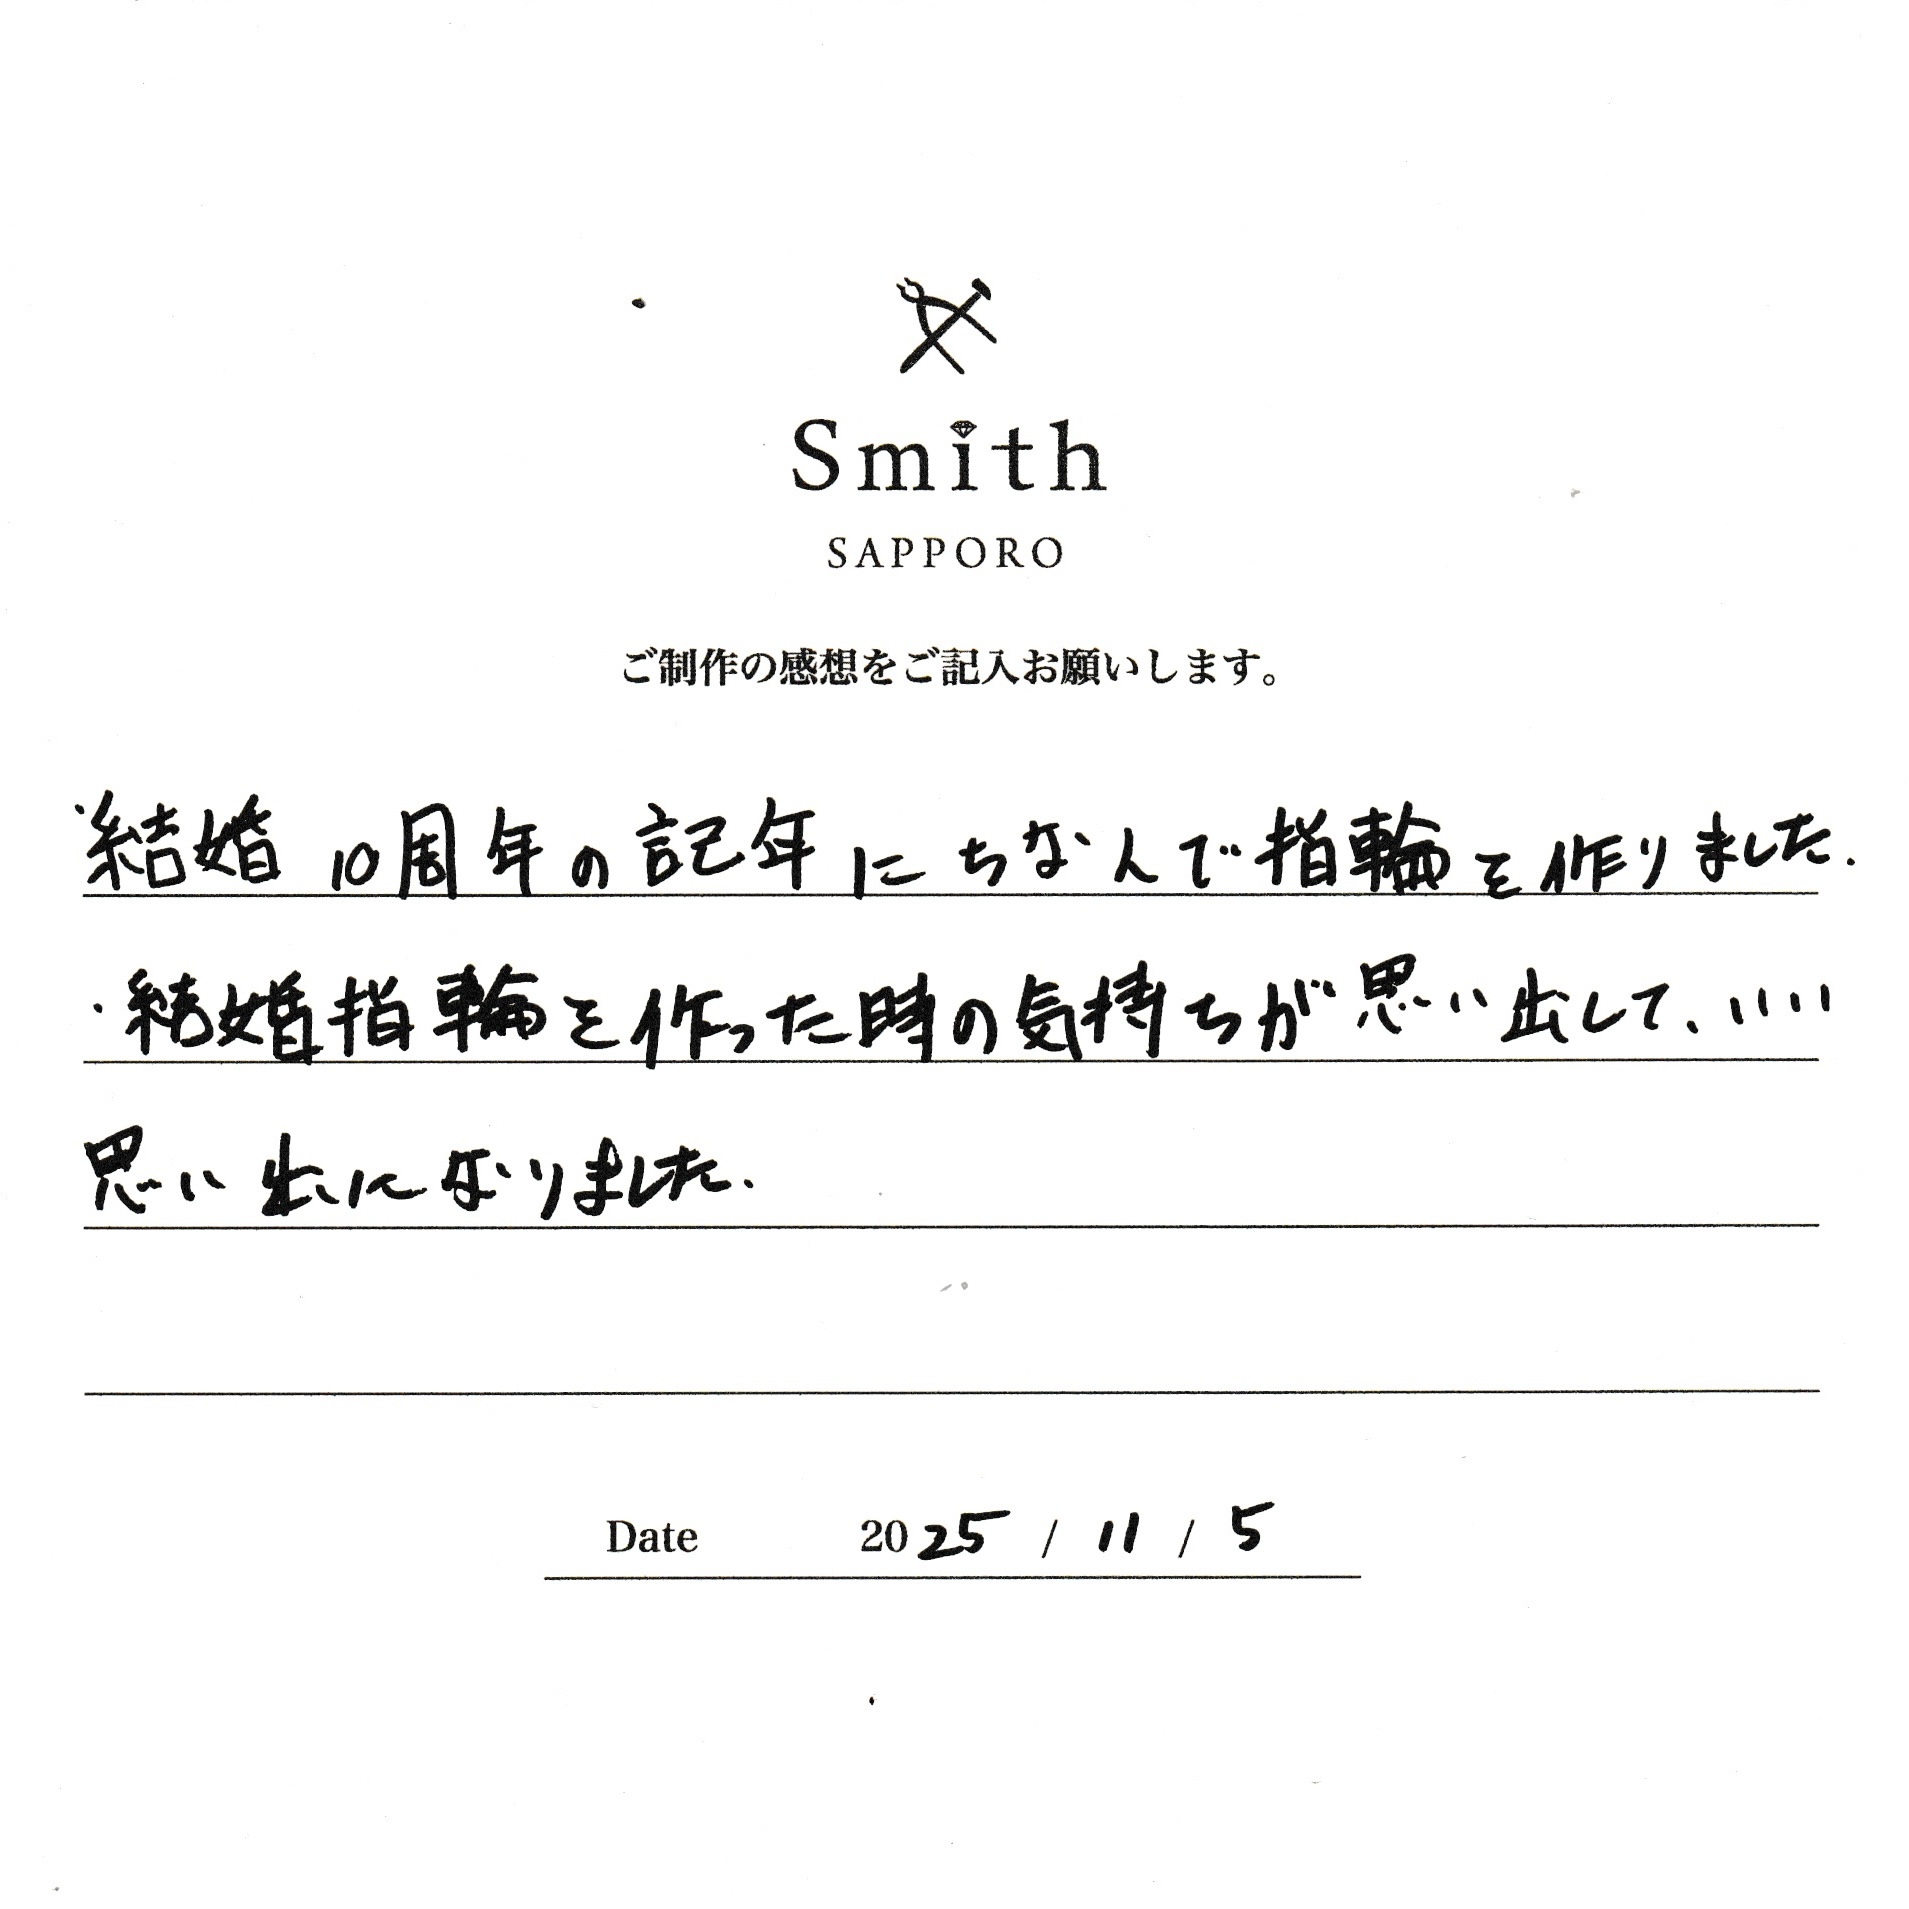 Smith
SAPPORO
ご制作の感想をご記入お願いします。
・結婚10周年の記年にちなんで指輪を作りました.
・結婚指輪を作った時の気持ちが思い出して、いい
思い出になりました.
Date 2025 / 11 / 5